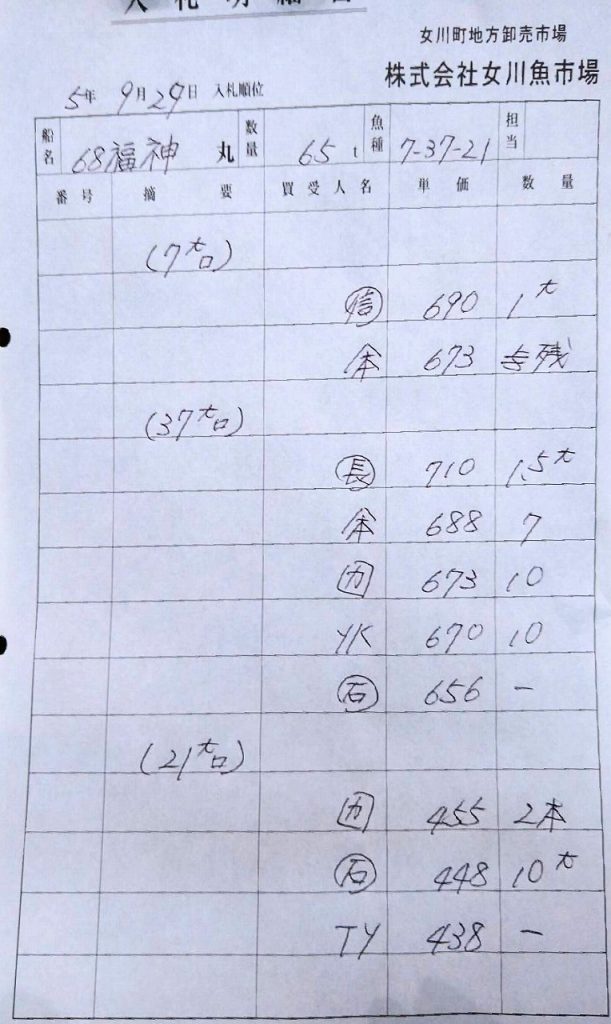 入札明細書
女川町地方卸売市場
株式会社女川魚市場
5年 9月29日 入札順位
船名 68福神 丸 数量 65 t 魚種 7-37-21 担当
番号 摘要 買受人名 単価 数量
(7大口)
信 690 1大
本 673 全残
(37大口)
長 710 1.5大
本 688 7
カ 673 10
YK 670 10
石 656 −
(21大口)
カ 455 2本
石 448 10大
TY 438 −